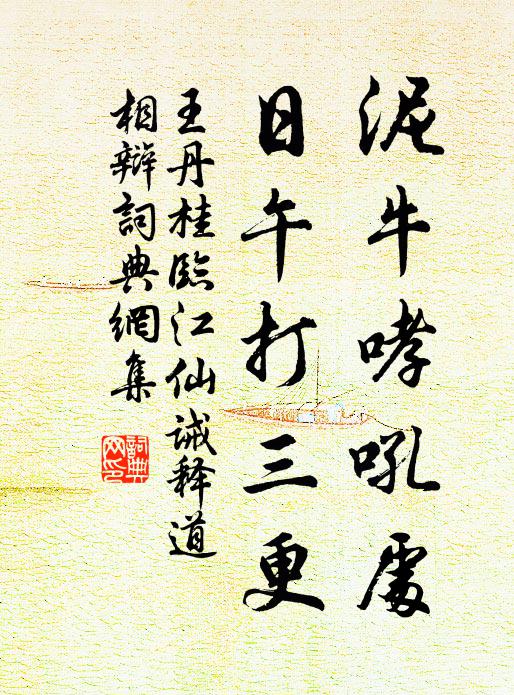 泥牛哮吼處
日午打三更
王丹桂臨江仙诫释道
相辯詞典網集
詞典
网印